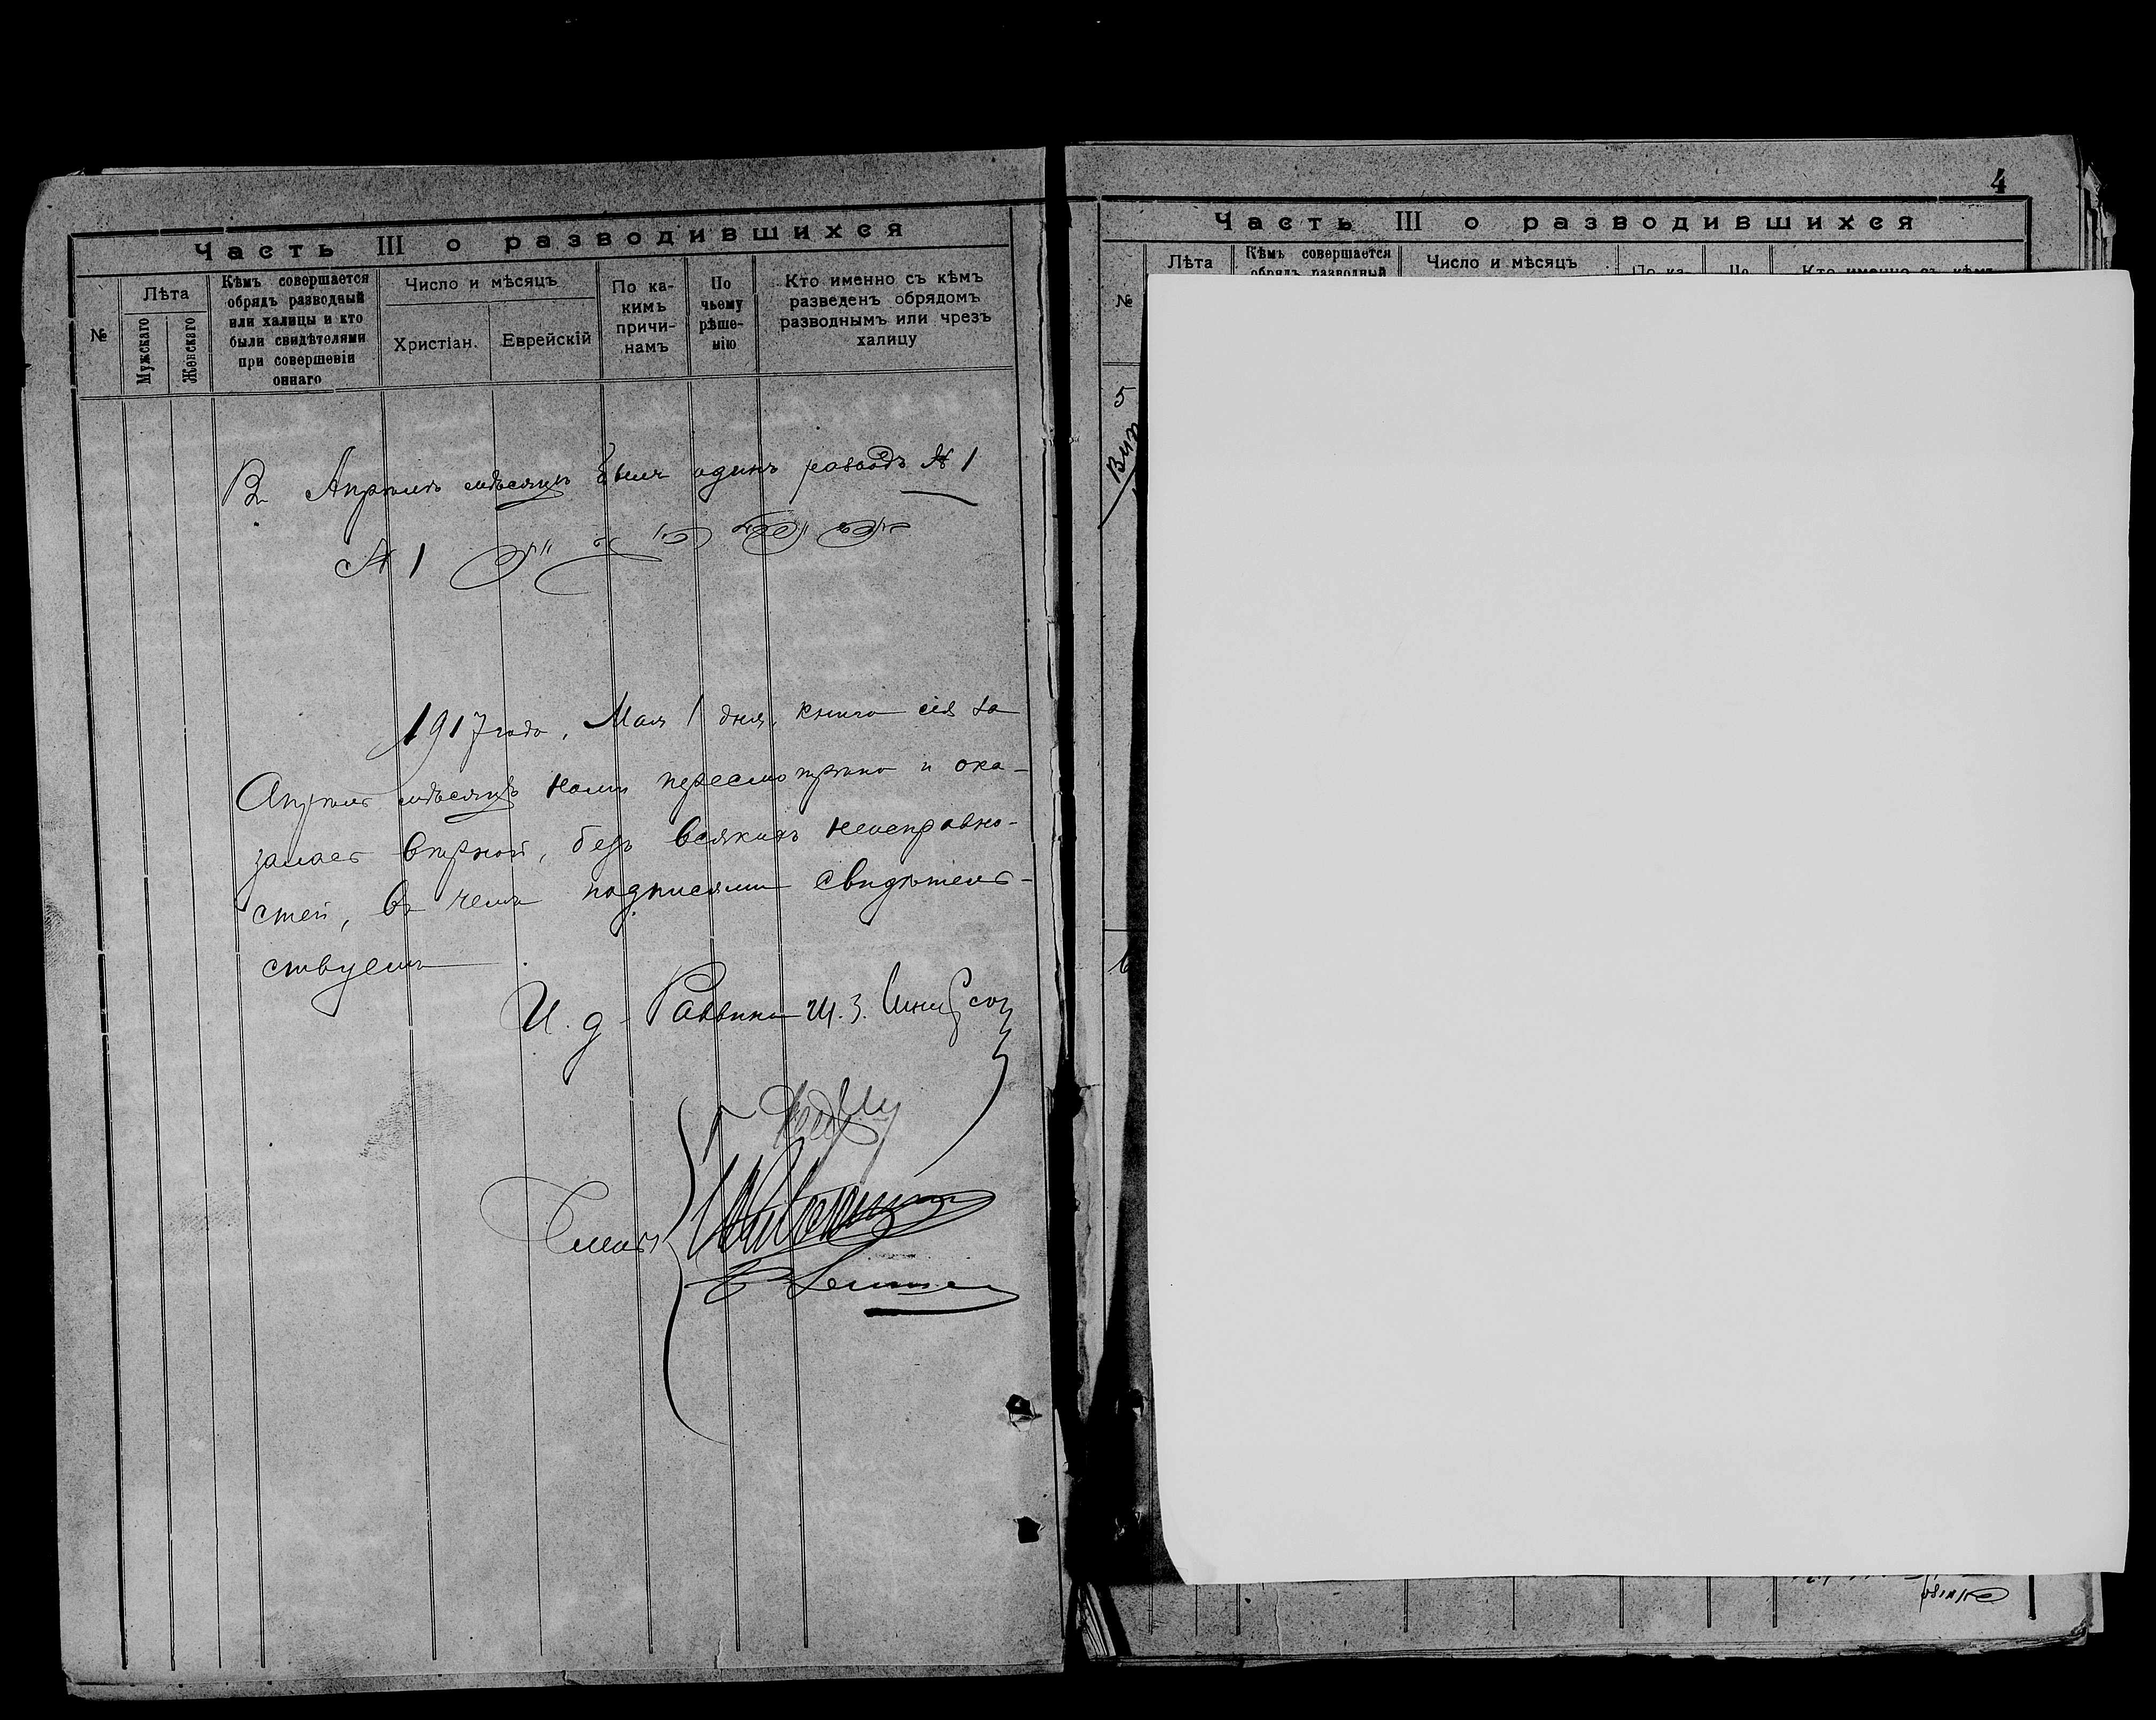 Часть III о разводившихся
№
Лѣта
Мужскаго
Женскаго
Кѣмъ совершается
обрядъ разводный
или халицы и кто
были свидѣтелями
при совершеніи
оннаго
Число и мѣсяцъ
Христіан.
Еврейскій
По ка-
кимъ
причи-
намъ
По
чьему
рѣше-
нію
Кто именно съ кѣмъ
разведенъ обрядомъ
разводнымъ или чрезъ
халицу
Въ Апрѣлѣ мѣсяцѣ былъ одинъ разводъ № 1
№ 1
1917 года, Мая 1 дня, книга сія за
Апрѣль мѣсяцъ нами пересмотрѣна и ока-
залась вѣрной, безъ всякихъ неисправно-
стей, въ чемъ подписями свидѣтель-
ствуемъ
И. д. Раввина
Члены
4
Часть III о разводившихся
№
Лѣта
Кѣмъ совершается
обрядъ разводный
Число и мѣсяцъ
По ка-
По
Кто именно съ кѣмъ
5